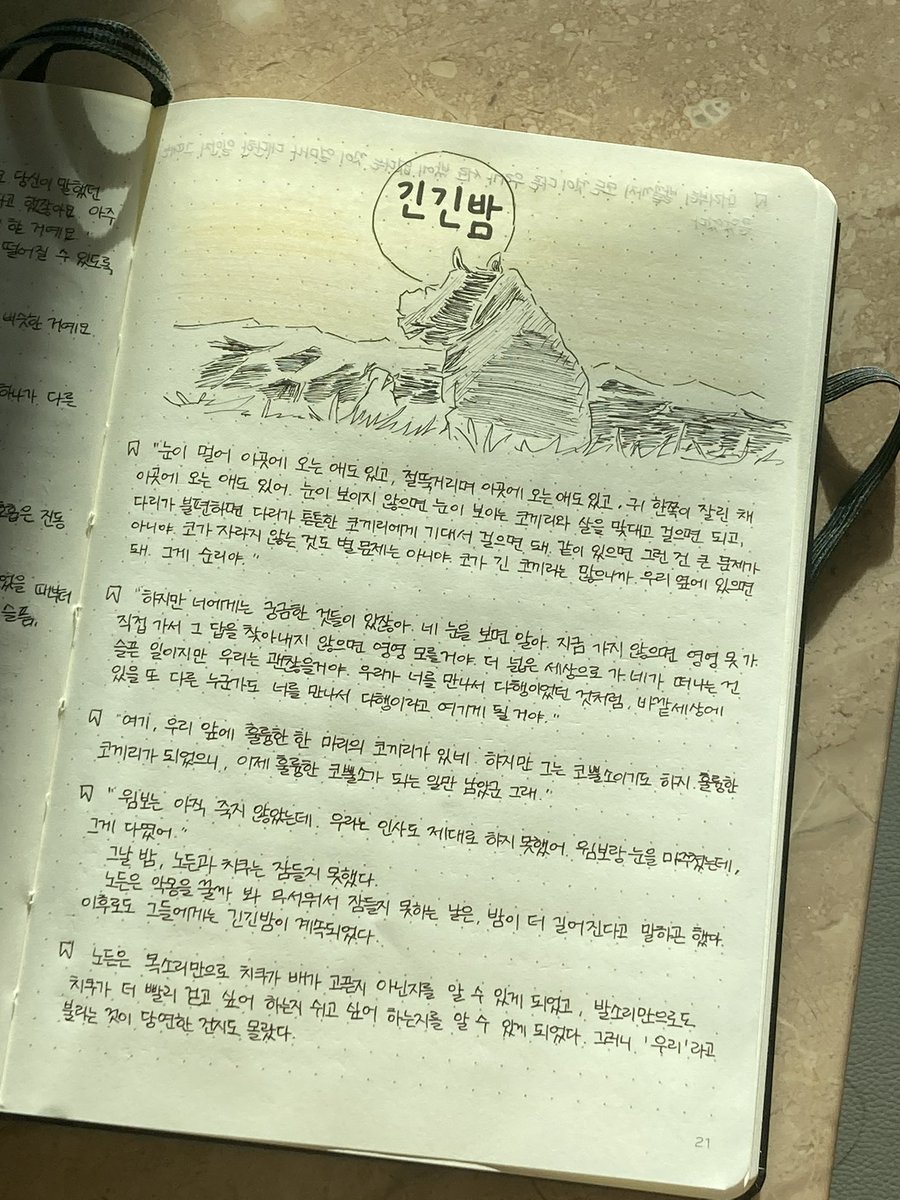 고 당신이 말했던
라고 했잖아요 아주
한 거예요"
떨어질 수 있도록
비슷한 거예요
하나가 다른
흐름은 진동
없을 때부터
슬픔,
긴긴밤
"눈이 멀어 이곳에 오는 애도 있고, 절뚝거리며 이곳에 오는 애도 있고, 귀 한쪽이 잘린 채
이곳에 오는 애도 있어. 눈이 보이지 않으면 눈이 보이는 코끼리와 살을 맞대고 걸으면 되고,
다리가 불편하면 다리가 튼튼한 코끼리에게 기대서 걸으면 돼. 같이 있으면 그런 건 큰 문제가
아니야. 코가 자라지 않는 것도 별 문제는 아니야. 코가 긴 코끼리는 많으니까. 우리 옆에 있으면
돼. 그게 순리야."
"하지만 너에게는 궁금한 것들이 있잖아. 네 눈을 보면 알아. 지금 가지 않으면 영영 못 가.
직접 가서 그 답을 찾아내지 않으면 영영 모를거야. 더 넓은 세상으로 가. 네가 떠나는 건
슬픈 일이지만 우리는 괜찮을거야. 우리가 너를 만나서 다행이었던 것처럼, 바깥세상에
있을 또 다른 누군가도 너를 만나서 다행이라고 여기게 될 거야."
"여기, 우리 앞에 훌륭한 한 마리의 코끼리가 있네. 하지만 그는 코뿔소이기도 하지. 훌륭한
코끼리가 되었으니, 이제 훌륭한 코뿔소가 되는 일만 남았군 그래."
"윔보는 아직 죽지 않았는데. 우리는 인사도 제대로 하지 못했어. 윔보랑 눈을 마주쳤는데,
그게 다였어."
그날 밤, 노든과 치쿠는 잠들지 못했다.
노든은 악몽을 꿀까 봐 무서워서 잠들지 못하는 날은, 밤이 더 길어진다고 말하곤 했다.
이후로도 그들에게는 긴긴밤이 계속되었다.
노든은 목소리만으로 치쿠가 배가 고픈지 아닌지를 알 수 있게 되었고, 발소리만으로도
치쿠가 더 빨리 걷고 싶어 하는지 쉬고 싶어 하는지를 알 수 있게 되었다. 그러니 '우리'라고
불리는 것이 당연한 건지도 몰랐다.
21